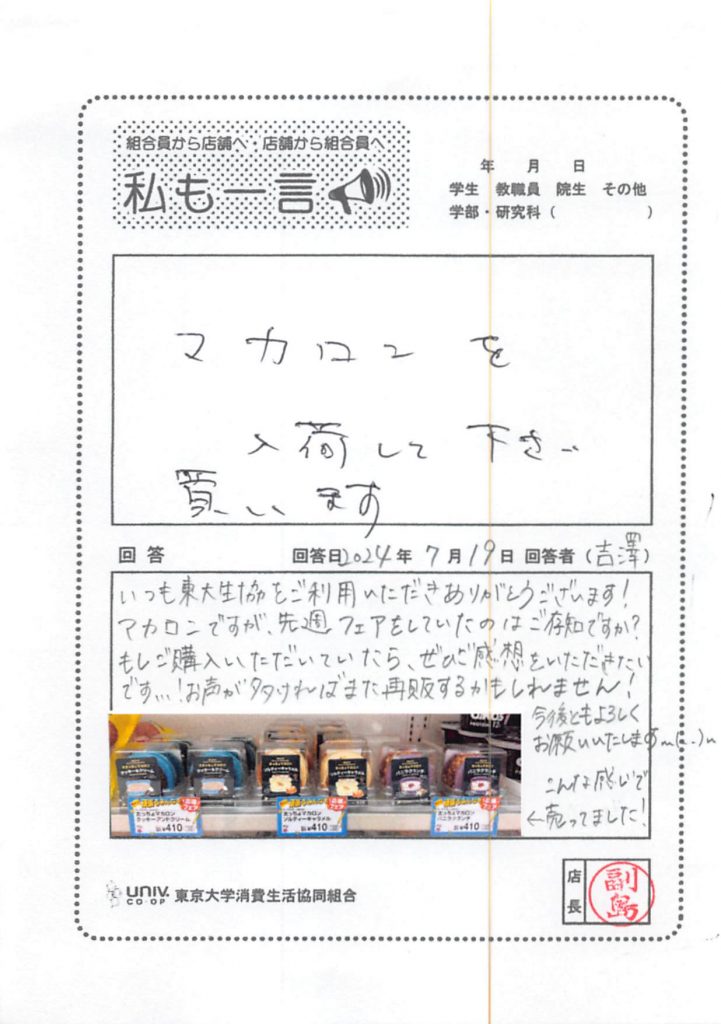 組合員から店舗へ・店舗から組合員へ
私も一言
年 月 日
学生 教職員 院生 その他
学部・研究科（ ）
マカロンを
入荷して下さい
買います
回答 回答日2024年7月19日 回答者（吉澤）
いつも東大生協をご利用いただきありがとうございます！
マカロンですが、先週フェアをしていたのはご存知ですか？
もしご購入いただいていたら、ぜひご感想をいただきたい
です…！お声が多ければまた再販するかもしれません！
今後ともよろしく
お願いいたしますm(..)m
こんな感じで
←売ってました！
クッキー&クリーム
クッキー&クリーム
ソルティーキャラメル
ソルティーキャラメル
バニラクランチ
バニラクランチ
太っちょマカロン
クッキーアンドクリーム
¥410
太っちょマカロン
ソルティーキャラメル
¥410
太っちょマカロン
バニラクランチ
¥410
UNIV.
CO・OP
東京大学消費生活協同組合
店長
副島